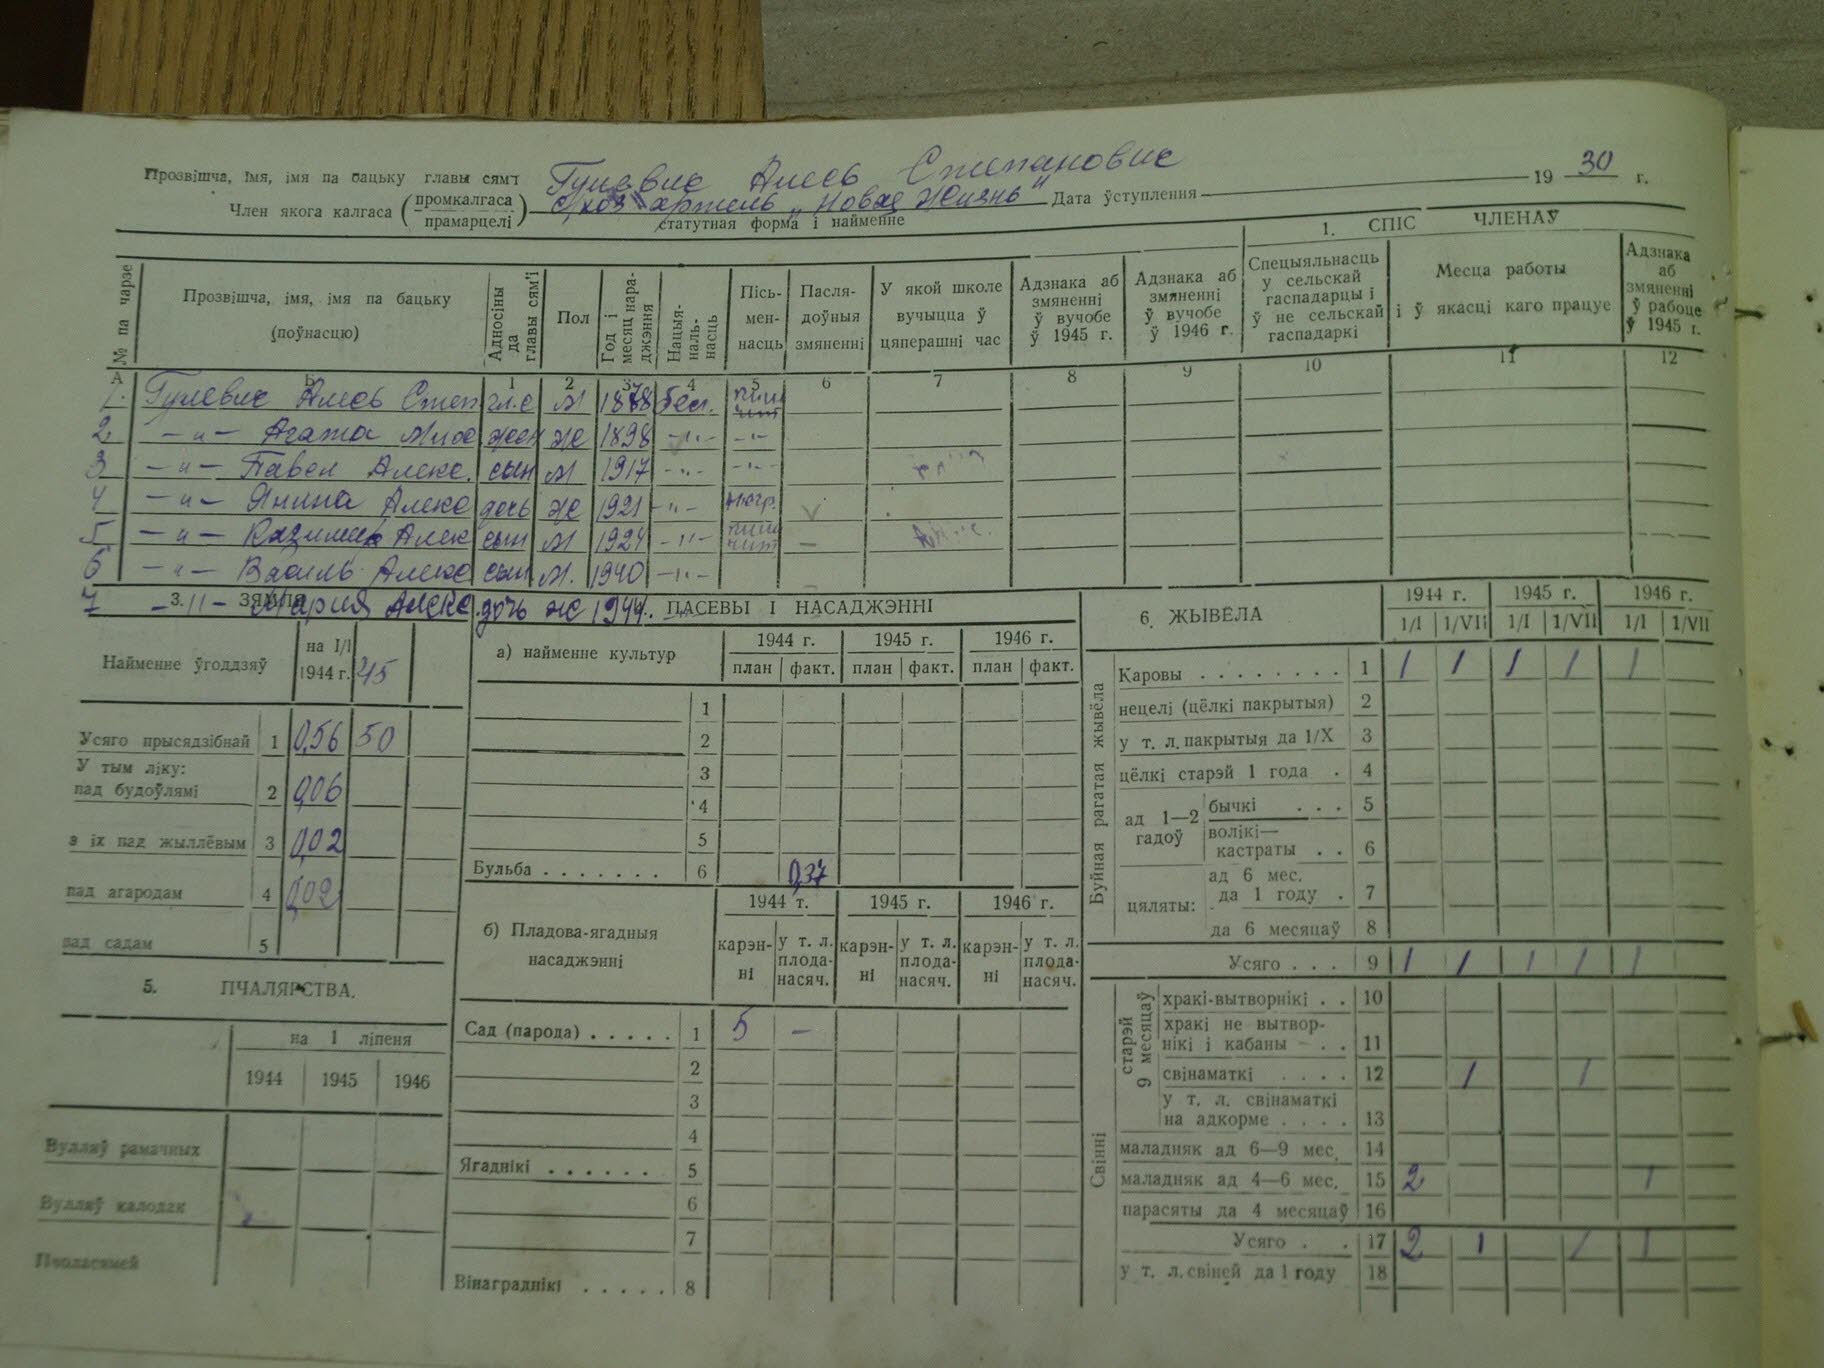 Прозвішча, імя, імя па бацьку главы сям'і Гулевич Алесь Степанович 19 30 г.
Член якога калгаса (промкалгаса прамарцелі) с/хоз артель „Новая Жизнь" Дата ўступлення
статутная форма і найменне
1. СПІС ЧЛЕНАЎ
№ па чарзе
Прозвішча, імя, імя па бацьку (поўнасцю)
Адносіны да главы сям'і
Пол
Год і месяц нараджэння
Нацыянальнасць
Пісьменнасць
Паслядоўныя змяненні
У якой школе вучыцца ў цяперашні час
Адзнака аб змяненні ў вучобе ў 1945 г.
Адзнака аб змяненні ў вучобе ў 1946 г.
Спецыяльнасць у сельскай гаспадарцы і ў не сельскай гаспадаркі
Месца работы і ў якасці каго працуе
Адзнака аб змяненні ў рабоце ў 1945 г.
А Б 1 2 3 4 5 6 7 8 9 10 11 12
1. Гулевич Алесь Степ гл.с М 1878 бел. пиш чит
2 -"- Агата жен Ж 1898 -"- -"-
3 -"- Павел Алекс. сын М 1917 -"- -"-
4 -"- Янина Алекс дочь Ж 1921 -"- негр. V
5 -"- Казимир Алек сын М 1924 -"- пиш чит -
6 -"- Василь Алекс сын М. 1940 -"-
7 -"- Мария Алекс. дочь Ж 1944.
3. ЗЯМЛЯ
Найменне ўгоддзяў на 1/I 1944 г. 45
Усяго прысядзібнай 1 0,56 50
У тым ліку:
пад будоўлямі 2 0,06
з іх пад жыллёвым 3 0,02
пад агародам 4 0,02
пад садам 5
5. ПЧАЛЯРСТВА.
на 1 ліпеня
1944 1945 1946
Вулляў рамачных
Вулляў калодак
Пчоласямей
ПАСЕВЫ І НАСАДЖЭННІ
а) найменне культур 1944 г. 1945 г. 1946 г.
план факт. план факт. план факт.
1
2
3
4
5
Бульба . . . . . . . 6 0,37
б) Пладова-ягадныя насаджэнні
1944 г. 1945 г. 1946 г.
карэнні у т. л. плоданасяч. карэнні у т. л. плоданасяч. карэнні у т. л. плоданасяч.
Сад (парода) . . . . . 1 5 -
2
3
4
Ягаднікі . . . . . . 5
6
7
Вінаграднікі . . . . . 8
6. ЖЫВЁЛА 1944 г. 1945 г. 1946 г.
1/I 1/VII 1/I 1/VII 1/I 1/VII
Буйная рагатая жывёла
Каровы . . . . . . . . 1 1 1 1 1 1
нецелі (цёлкі пакрытыя) 2
у т. л. пакрытыя да 1/X 3
цёлкі старэй 1 года . 4
ад 1—2 гадоў
бычкі . . . 5
волікі—кастраты . . 6
цяляты:
ад 6 мес. да 1 году . 7
да 6 месяцаў 8
Усяго . . . 9 1 1 1 1 1
Свінні
старэй 9 месяцаў
хракі-вытворнікі . . 10
хракі не вытворнікі і кабаны . . 11
свінаматкі . . . . 12 1 1
у т. л. свінаматкі на адкорме . . . . 13
маладняк ад 6—9 мес. 14
маладняк ад 4—6 мес. 15 2 1
парасяты да 4 месяцаў 16
Усяго . . 17 2 1 1 1
у т. л. свіней да 1 году 18